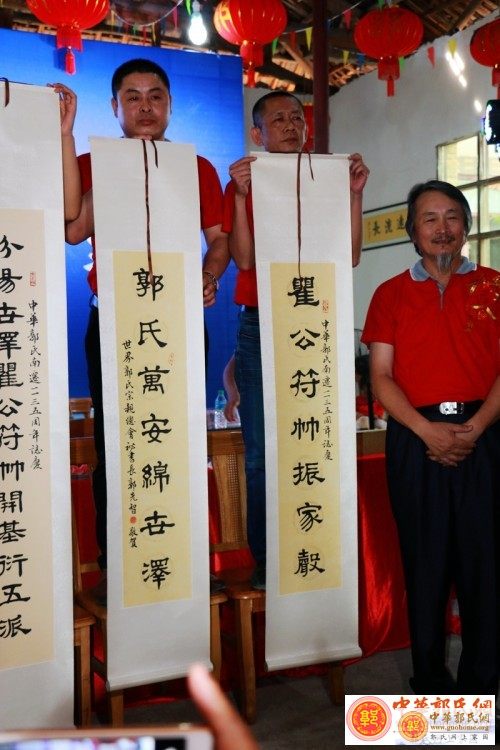 遠流長
瞿公符帥振家聲
中華郭氏南遷一一三五周年誌慶
郭氏萬安綿世澤
世界郭氏宗親總會秘書長郭先智敬賀
中華郭氏南遷一一三五周年誌慶
汾陽世澤瞿公符帥開基衍五派
中华郭氏网
郭
中華郭氏網
www.guohome.org
郭氏網上家園